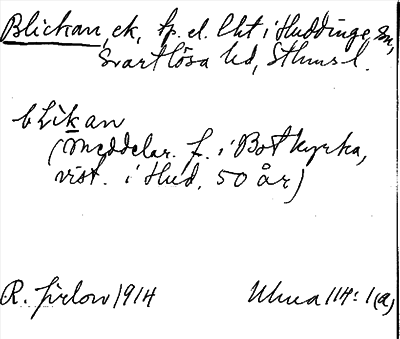 Blickan, ek, tp. el. lht i Huddinge sn,
Svartlösa hd, Sthms l.
blikan
(meddelar. f. i Botkyrka,
vist. i Hud. 50 år)
R. 1914
114: 1(a)